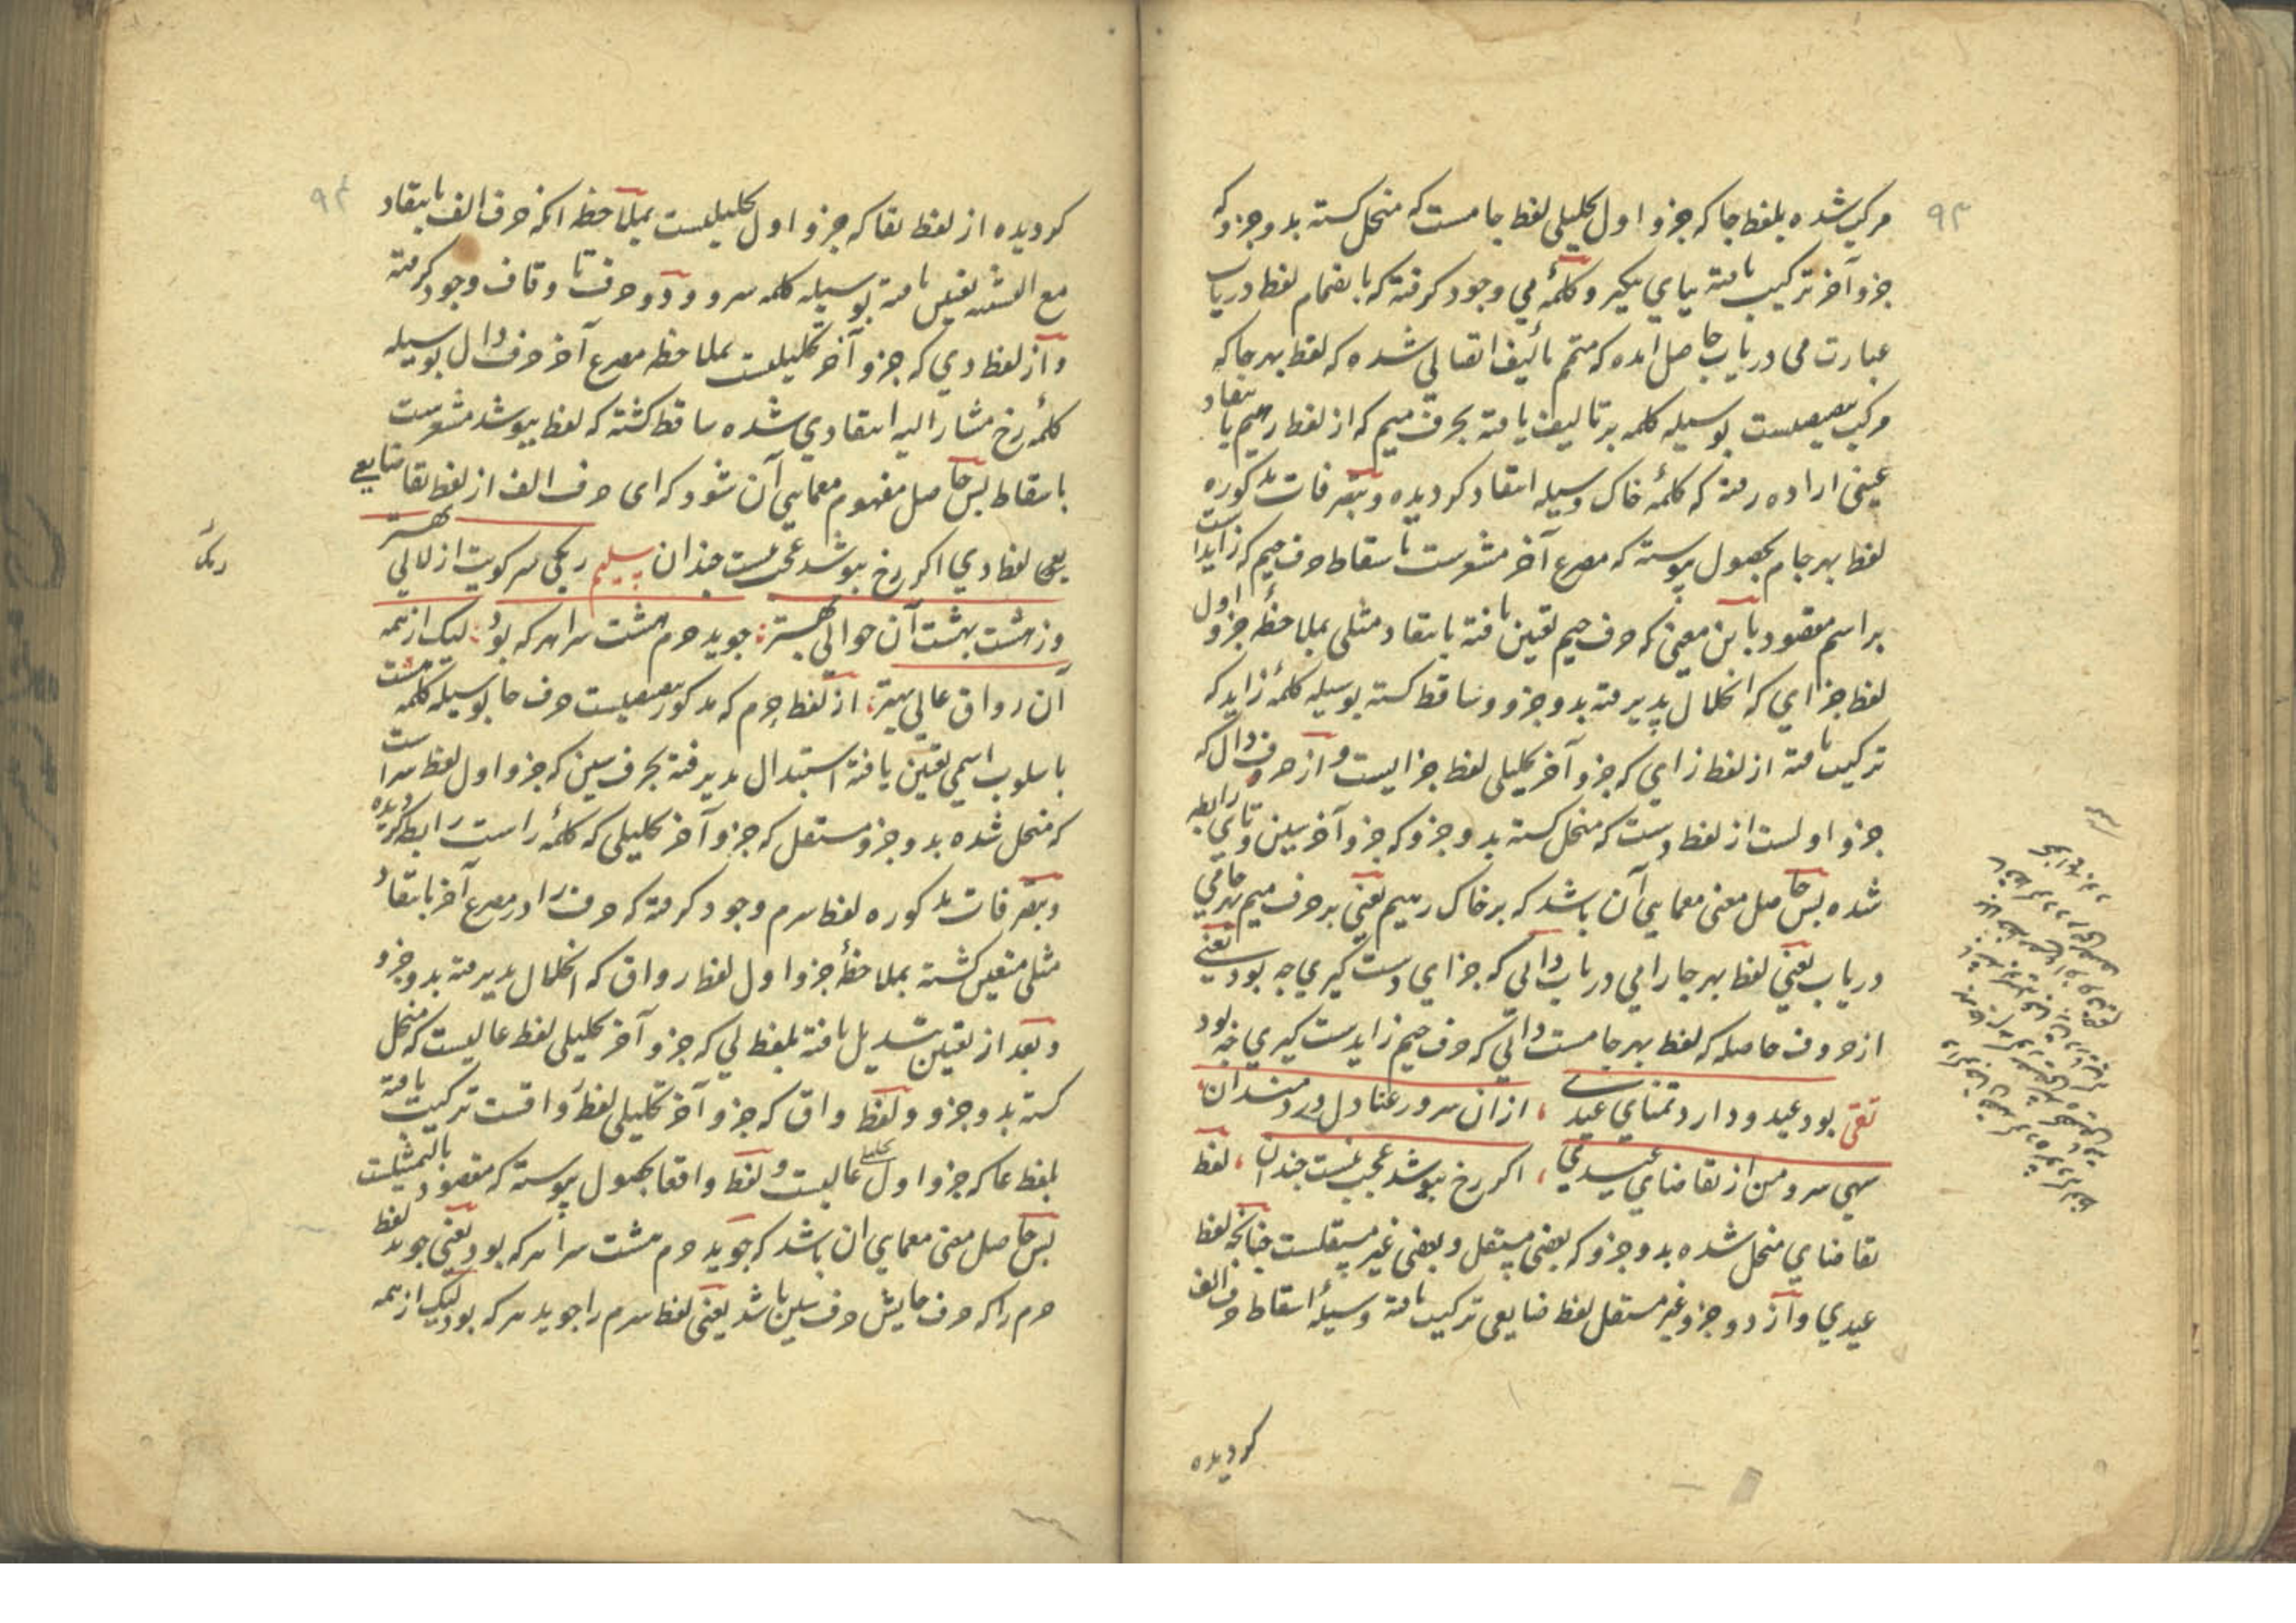 ۹۳
مرکب شده بلفظ جا که جزو اول تحلیلی لفظ جامست که منحل کسته بدو جزو که
جزو آخر ترکیب یافته بیای یکیر و کلمهٔ می وجود کرفته که بانضمام لفظ دریاب
عبارت می دریاب حاصل امده که متمم تألیف اتصالی شده که لفظ بهر جا که
مرکب بوسیله کلمه بر تالیف یافته بحرف میم که از لفظ رمیم بانتقاد
عینی اراده رفته که کلمهٔ خاک وسیله انتقاد کردیده وبتصرفات مذکوره
لفظ بهر جام بحصول پیوسته که مصرع آخر مشعرست باسقاط حرف جیم که زایداست
بر اسم مقصود باین معنی که حرف جیم تعین یافته بانتقاد مثلی بملاحظهٔ جزو اول
لفظ جزای که انحلال پذیرفته بدو جزو و ساقط کسته بوسیله کلمهٔ زاید که
ترکیب یافته از لفظ زای که جزو آخر تحلیلی لفظ جزایست و از حروف دال که
جزو اولست از لفظ دست که منحل کسته بدو جزو که جزو آخر سین و تای رابطه
شده بس حاصل معنی معمایی آن باشد که بر خاک رمیم یعنی بر حرف میم بهر جا می
دریاب یعنی لفظ بهر جا را می دریاب دالی که جزای دست کیری چه بود یعنی
از حروف حاصله که لفظ بهر جامست دالی که حرف جیم زایدست کیری چه بود
تقی بود عید و دارد تمنای عیدی ، از ان سرور عنادل دردمندان ،
سهی سرو من از تقاضای عیدی ، اکر رخ بپوشد عجب نیست چندان ، لفظ
تقاضای منحل شده بدو جزو که بعضی مستقل و بعضی غیر مستقلست چنانچه لفظ
عیدی و از دو جزو غیر مستقل لفظ ضایعی ترکیب یافته وسیلهٔ اسقاط حرف الف
کردیده
۹۴
کردیده از لفظ تقا که جزو اول تحلیلیست بملاحظه انکه حرف الف بانتقاد
مع تعین یافته بوسیله کلمه سرو و دو حرف تا و قاف وجود کرفته
و از لفظ دی که جزو آخر تحلیلیست بملاحظه مصرع آخر حرف دال بوسیله
کلمهٔ رخ مشار الیه انتقادی شده ساقط کشته که لفظ بپوشد مشعرست
باسقاط بس حاصل مفهوم معمایی آن شود که ای حرف الف از لفظ تقا ضایعی
یعی لفظ دی اکر رخ بپوشد عجب نیست چندان سلیم ریکی سر کویت از لالی بهتر
وز هشت بهشت آن حوالی بهتر : جوید حرم هشت سرا هر که بود : لیک از همه
آن رواق عالی بهتر : از لفظ حرم که مذکور حرف حا بوسیله کلمه هشت
باسلوب اسمی تعین یافته استبدال پذیرفته بحرف سین که جزو اول لفظ سراست
که منحل شده بدو جزو مستقل که جزو آخر تحلیلی که کلمهٔ راست رابط کردیده
وبتصرفات مذکوره لفظ سرم وجود کرفته که حرف را در مصرع آخر بانتقاد
مثلی متعین کشته بملاحظهٔ جزو اول لفظ رواق که انحلال پذیرفته بدو جزو
و بعد از تعین تبدیل یافته بلفظ لی که جزو آخر تحلیلی لفظ عالیست که منحل
کسته بدو جزو و لفظ واق که جزو آخر تحلیلی لفظ رواقست ترکیب یافته
بلفظ عا که جزو اول تحلیلی عالیست و لفظ واقعا بحصول پیوسته که مقصود بالتمثیلست
بس حاصل معنی معمایی ان باشد که جوید حرم هشت سرا هر که بود یعنی جوید لفظ
حرم را که حرف حایش حرف سین باشد یعنی لفظ سرم را جوید هر که بود لیک از همه